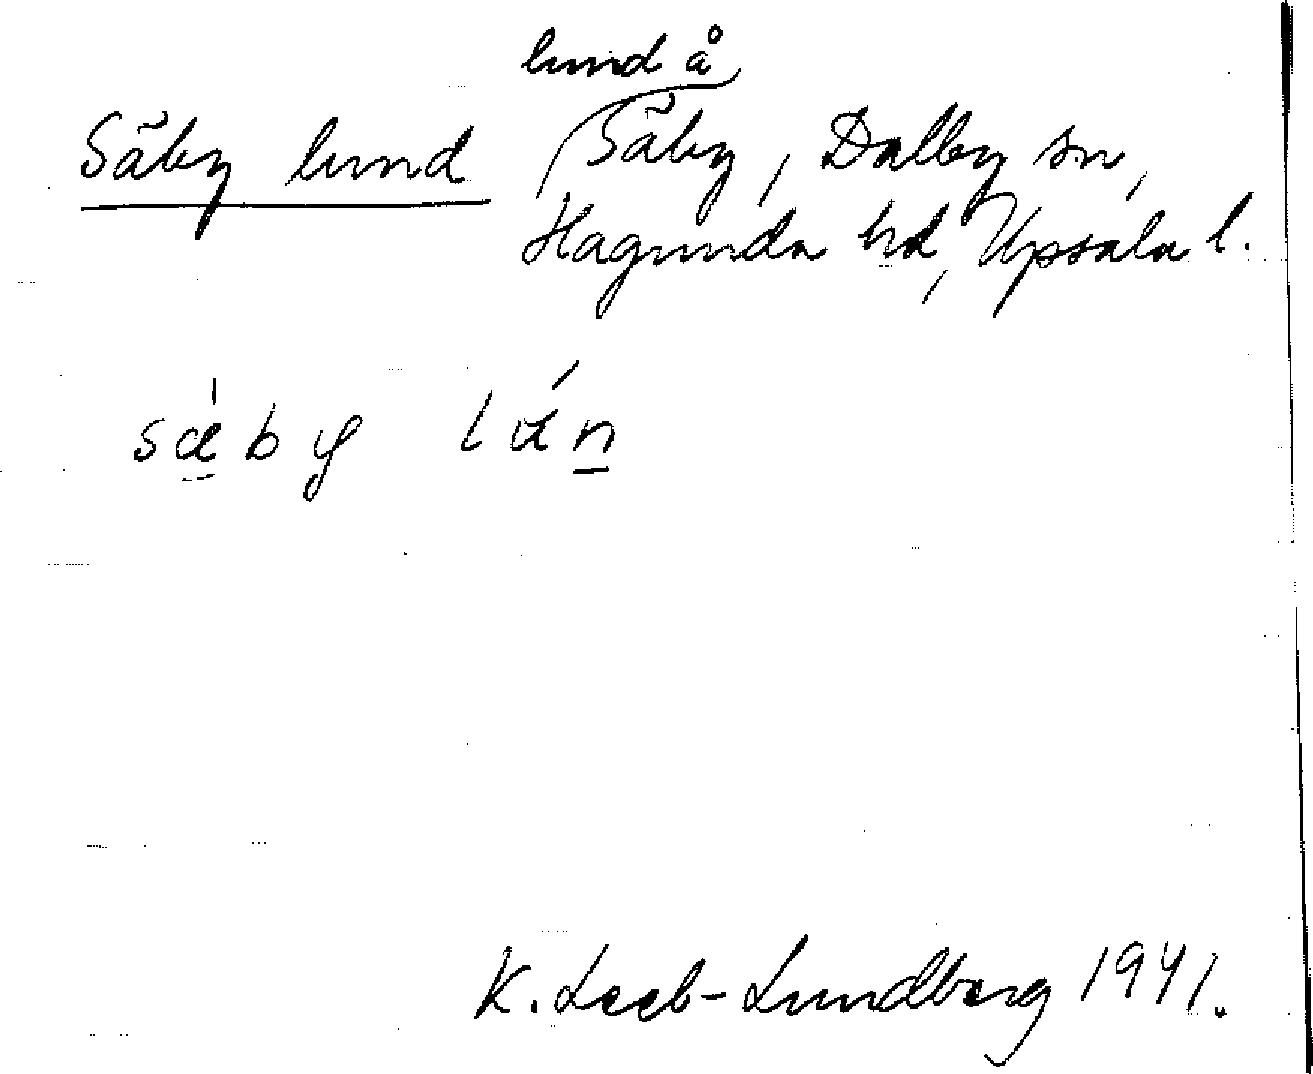 lund å
Säby lund Säby, Dalby sn,
Hagunda hd, Upsala l.
sæby lún
K. Leeb-Lundberg 1941.